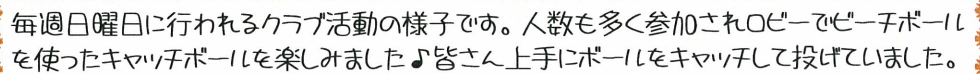 毎週日曜日に行われるクラブ活動の様子です。人数も多く参加されロビーでビーチボール
を使ったキャッチボールを楽しみました♪皆さん上手にボールをキャッチして投げていました。